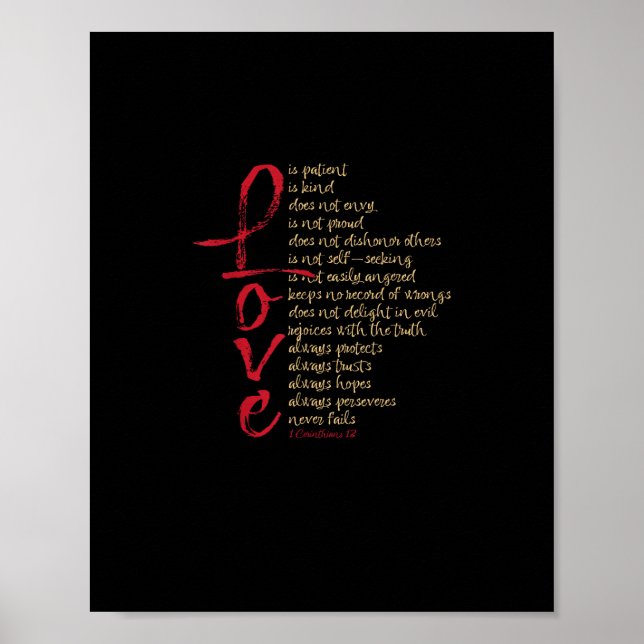 Love
is patient
is kind
does not envy
is not proud
does not dishonor others
is not self-seeking
is not easily angered
keeps no record of wrongs
does not delight in evil
rejoices with the truth
always protects
always trusts
always hopes
always perseveres
never fails
1 Corinthians 13